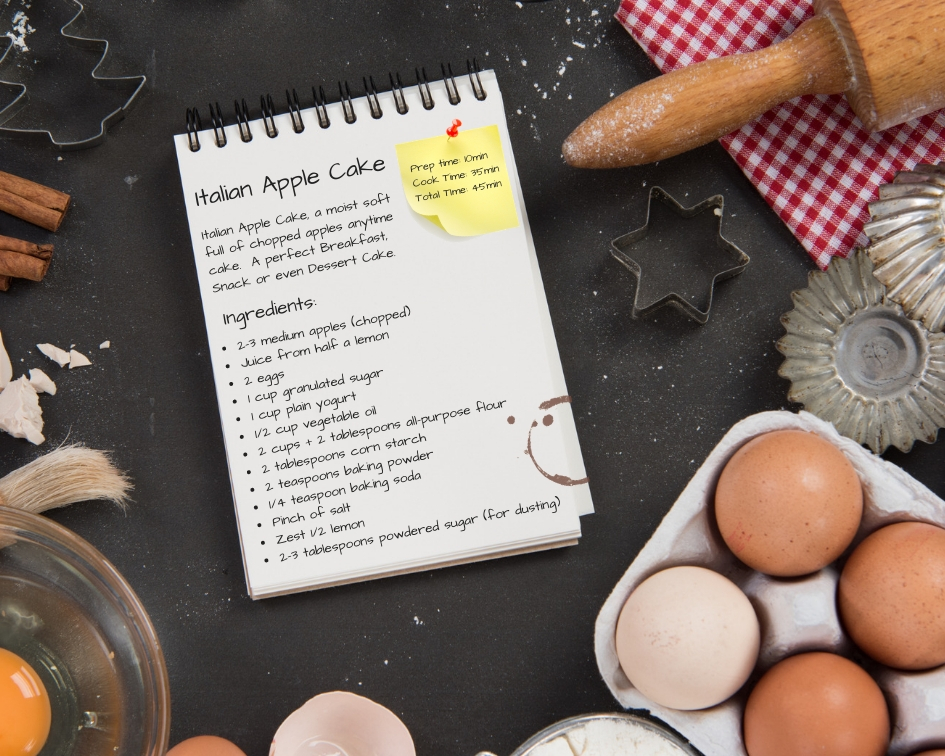 Italian Apple Cake
Prep time: 10min
Cook Time: 35min
Total Time: 45min
Italian Apple Cake, a moist soft
full of chopped apples anytime
cake.  A perfect Breakfast,
Snack or even Dessert Cake.
Ingredients:
• 2-3 medium apples (chopped)
• Juice from half a lemon
• 2 eggs
• 1 cup granulated sugar
• 1 cup plain yogurt
• 1/2 cup vegetable oil
• 2 cups + 2 tablespoons all-purpose flour
• 2 tablespoons corn starch
• 2 teaspoons baking powder
• 1/4 teaspoon baking soda
• Pinch of salt
• Zest 1/2 lemon
• 2-3 tablespoons powdered sugar (for dusting)